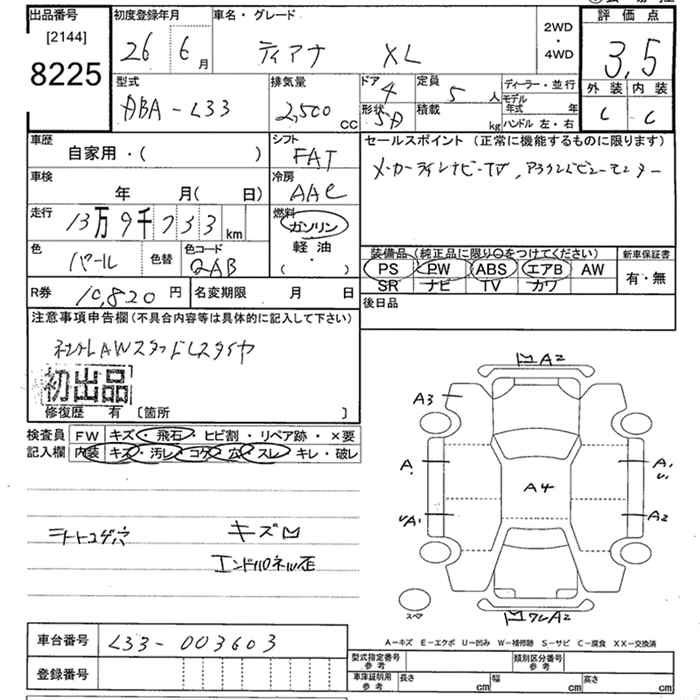 出品番号
[2144]
8225
初度登録年月
26 6月
車名・グレード
ティアナ XL
2WD
・
4WD
評価点
3,5
外装 内装
C C
型式
ABA-L33
排気量
2,500 CC
ドア 4
形状 SD
定員 5 人
積載 kg
ディーラー・並行
モデル年式 年
ハンドル 左・右
車歴
自家用・( )
シフト
FAT
セールスポイント (正常に機能するものに限ります)
メーカーナビ-TV,アラウンドビューモニター
車検
年 月(日)
冷房
AAC
走行
13万9千753km
燃料
ガソリン
軽油
( ・ )
色
パール
色替
色コード
QAB
装備品(純正品に限り○をつけてください)
PS PW ABS エアB AW
SR ナビ TV カワ
新車保証書
有・無
R券 10,820円
名変期限 月 日
後日品
注意事項申告欄(不具合内容等は具体的に記入して下さい)
AWスタッドレスタイヤ
初出品
修復歴 有 [箇所 ]
検査員
記入欄
FW キズ・飛石・ヒビ割・リペア跡・×要
内装 キズ・汚レ・コゲ・穴・スレ・キレ・破レ
シートコゲ穴
キズ凹
エンドパネル歪
凹A2
A3
A
A,
U,
A4
UA'
A2
スペア
凹ワレA2
A-キズ E-エクボ U-凹み W-補修跡 S-サビ C-腐食 XX-交換済
車台番号
L33-003603
登録番号
型式指定番号
参考
類別区分番号
参考
車庫証明用
参考
長さ cm 幅 cm 高さ cm